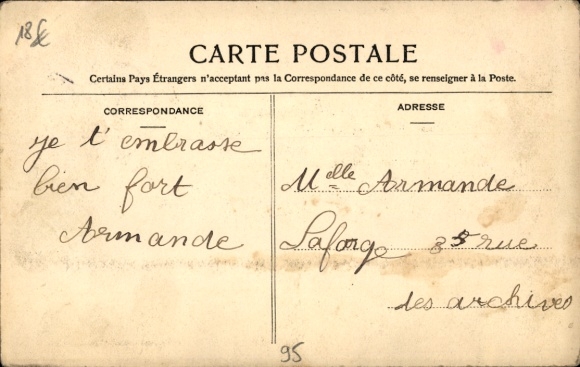 18£
CARTE POSTALE
Certains Pays Étrangers n'acceptant pas la Correspondance de ce côté, se renseigner à la Poste.
CORRESPONDANCE
je t' embrasse
bien fort
Armande
ADRESSE
Melle Armande
Laforge 35 rue
des archives
95